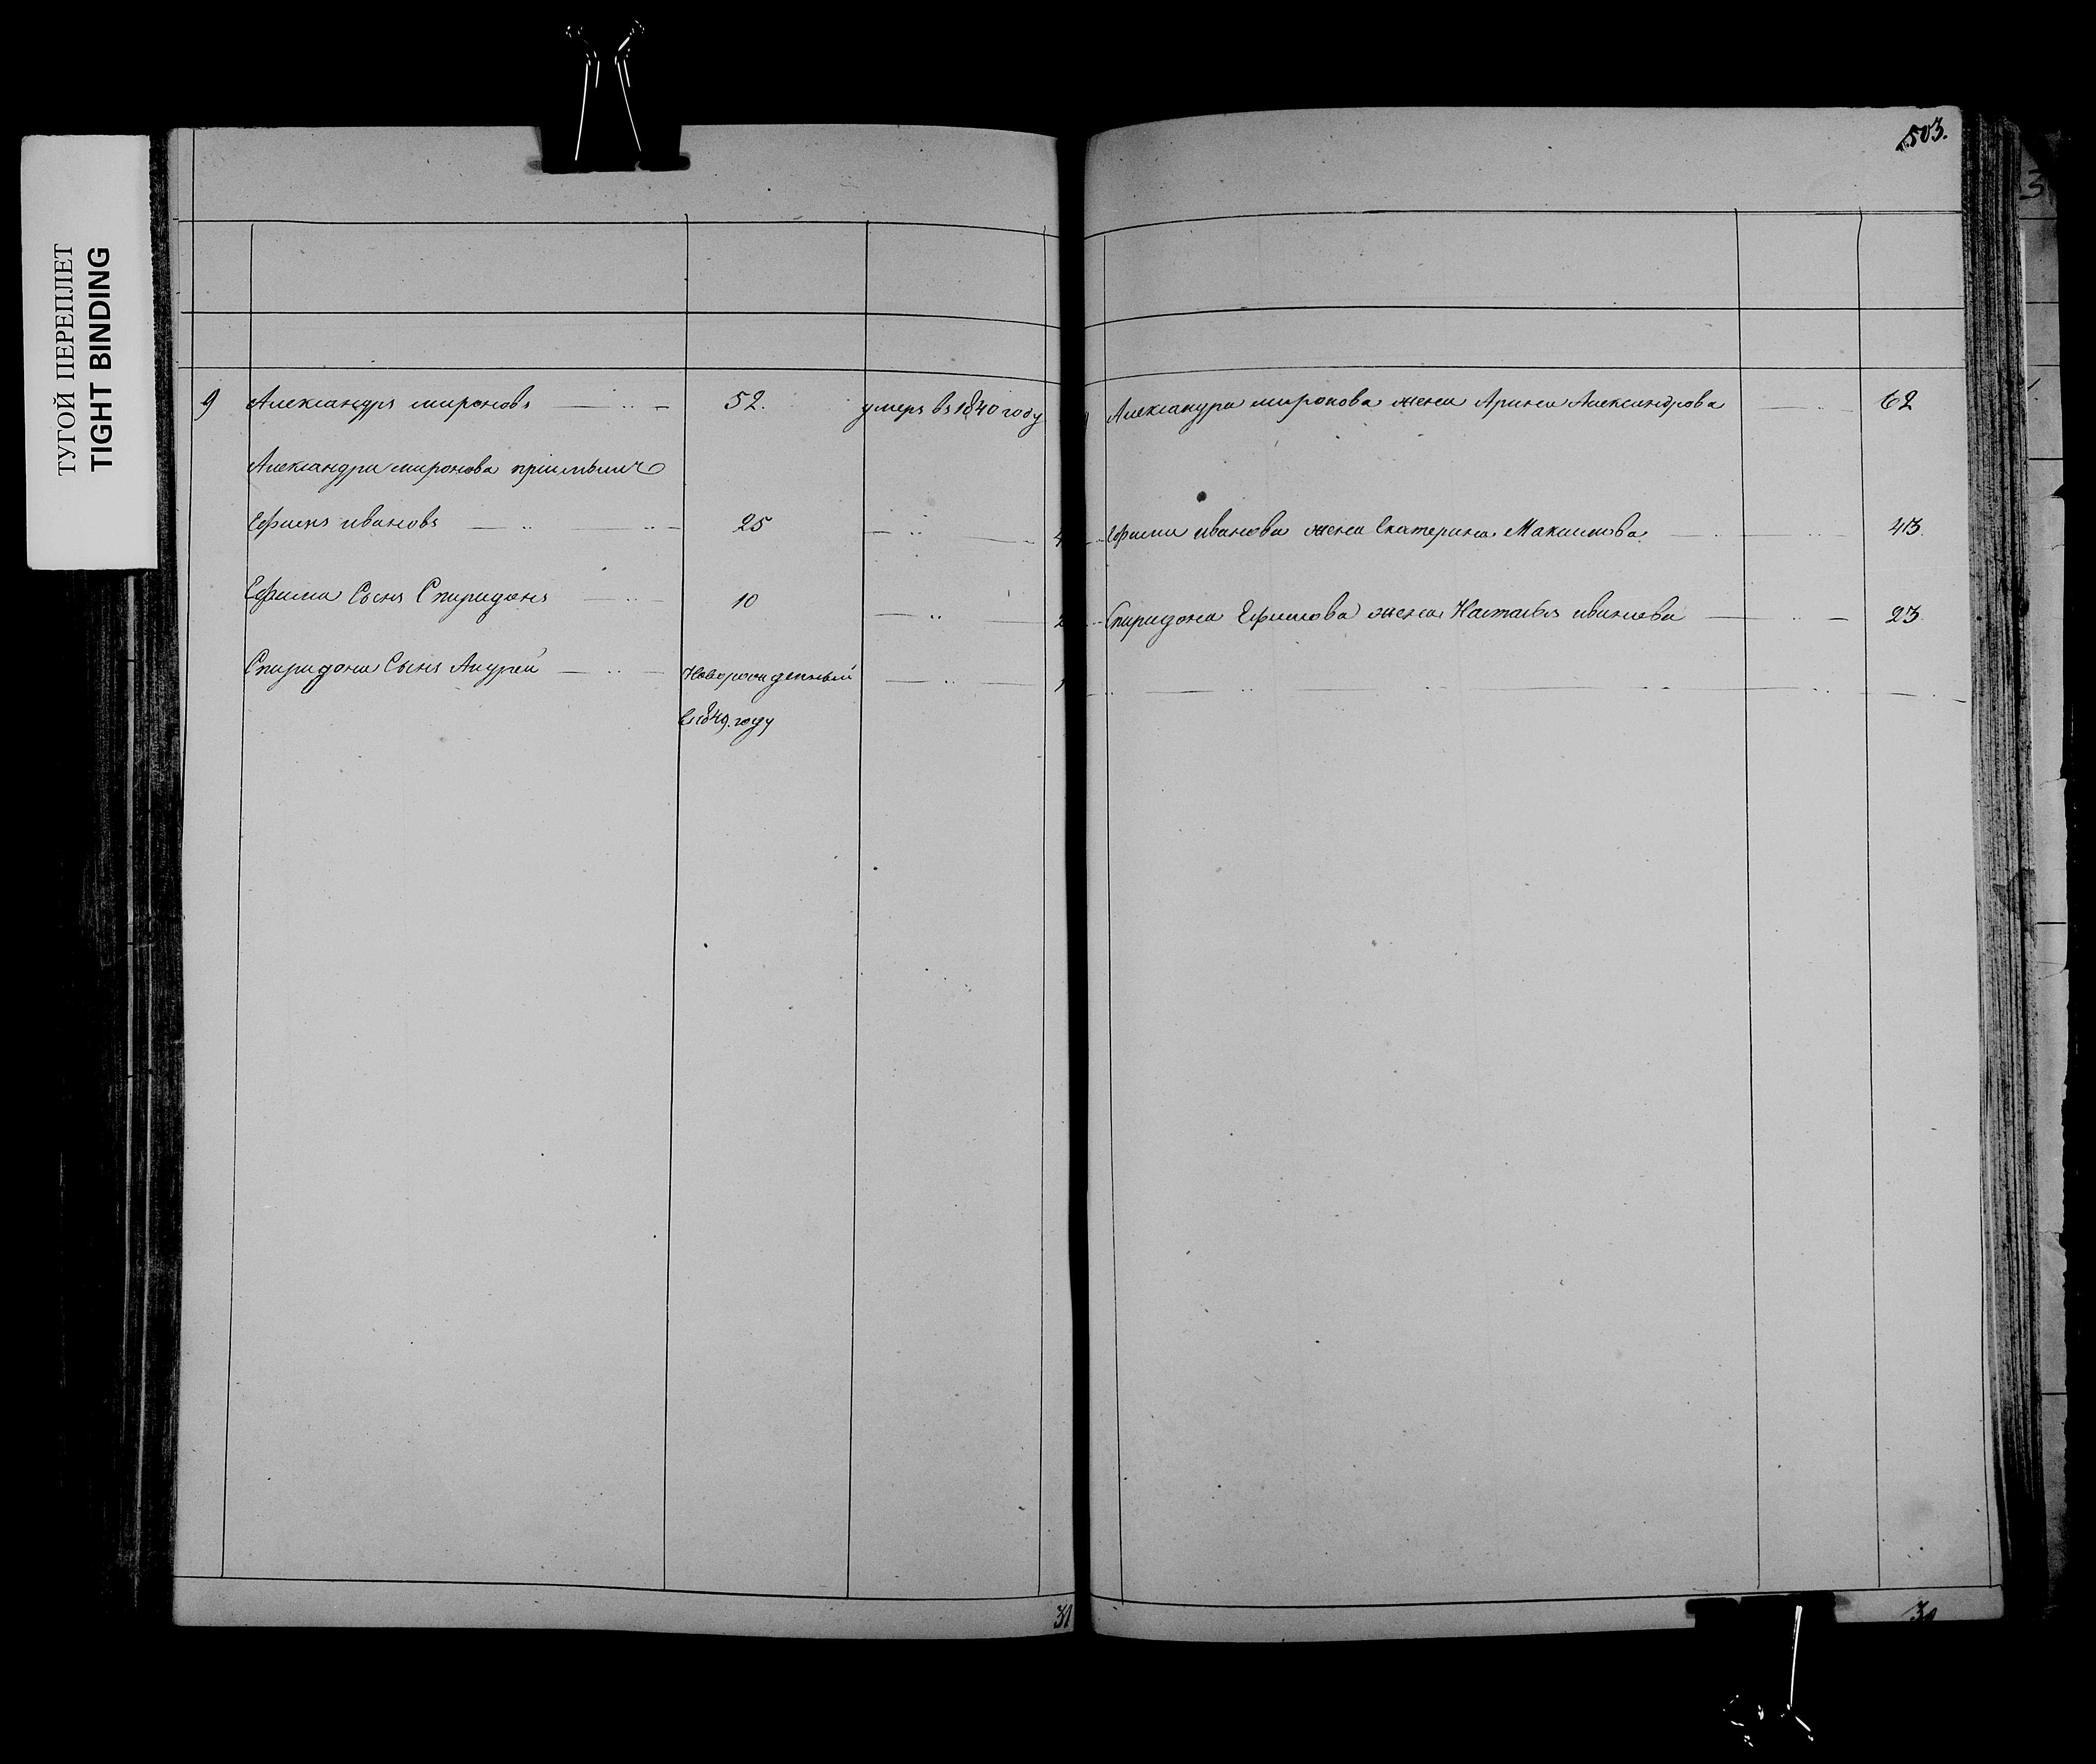 ТУГОЙ ПЕРЕПЛЕТ
TIGHT BINDING
9 Александръ мироновъ 52. умеръ въ 1840 году
Александра миронова пріимышъ
Ефимъ ивановъ 25
Ефима Сынъ Спиридонъ 10
Спиридона Сынъ Андрей Новорожденный
въ 1849. году
31
503.
Александра миронова жена Арина Александрова 62
Ефима иванова жена Екатерина Максимова 43.
Спиридона Ефимова жена Наталья иванова 23.